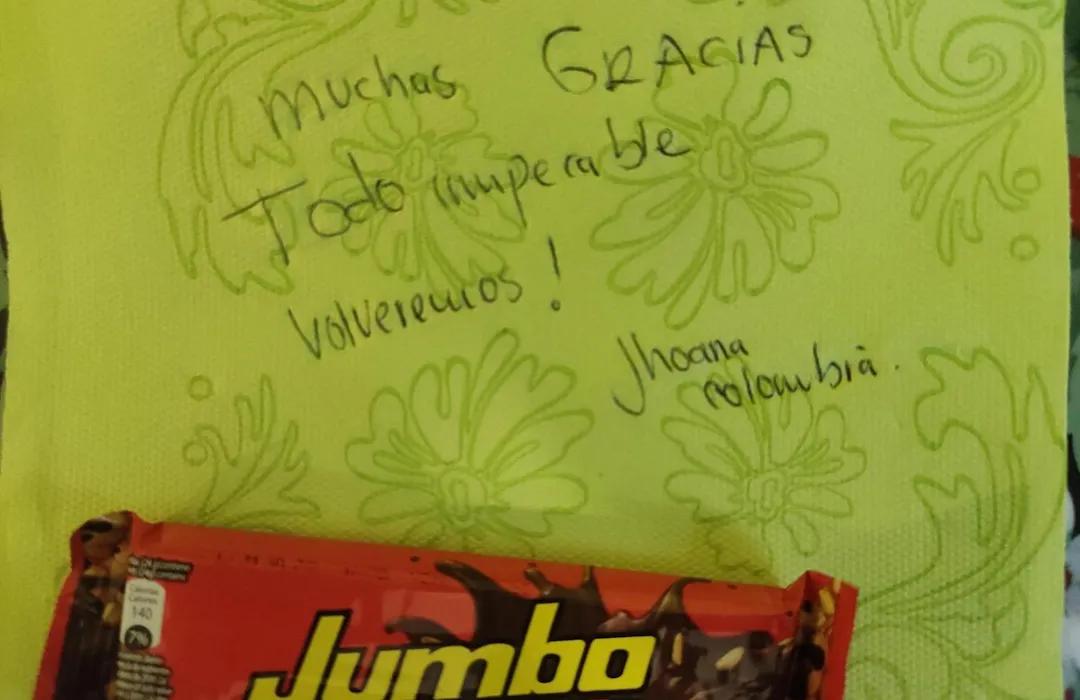 muchas GRACIAS
Todo impecable
Volveremos!
Jhoana
colombia.
Calorías
Calories
140
7%
Jumbo